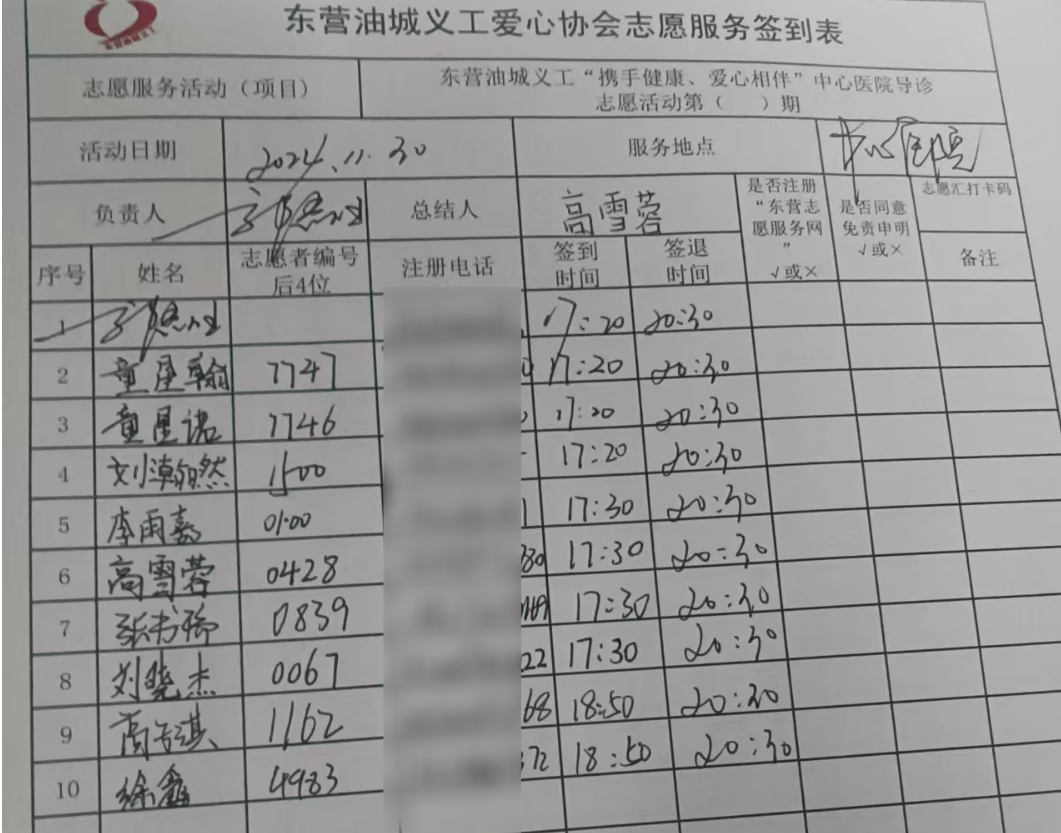 东营油城义工爱心协会志愿服务签到表
志愿服务活动（项目）
东营油城义工“携手健康、爱心相伴”中心医院导诊
志愿活动第（ ）期
活动日期 2024.11.30 服务地点
负责人 总结人 高雪蓉
是否注册
“东营志
愿服务网
”
√或×
是否同意
免责申明
√或×
志愿汇打卡码
备注
序号 姓名
志愿者编号
后4位
注册电话
签到
时间
签退
时间
1 17:20 20:30
2 童星翰 7747 17:20 20:30
3 童星诺 7746 17:20 20:30
4 刘瀚然 1500 17:20 20:30
5 李雨嘉 0100 1 17:30 20:30
6 高雪蓉 0428 17:30 20:30
7 0839 17:30 20:30
8 刘晓杰 0067 22 17:30 20:30
9 1162 68 18:50 20:30
10 徐鑫 4983 372 18:50 20:30